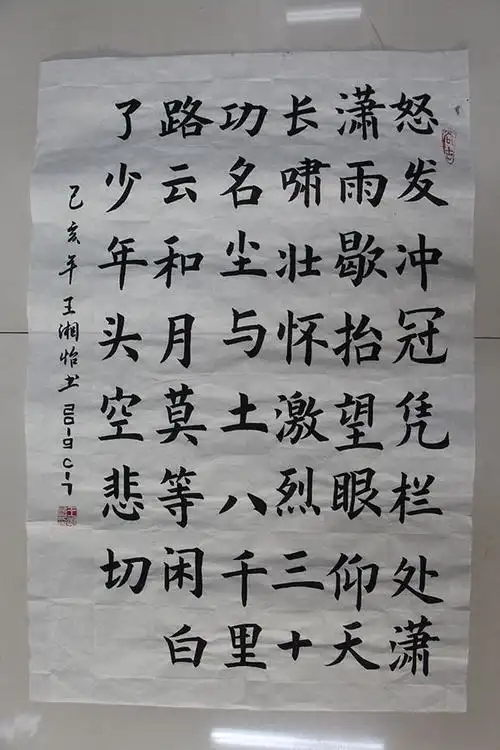 怒发冲冠凭栏处潇
潇雨歇抬望眼仰天
长啸壮怀激烈三十
功名尘与土八千里
路云和月莫等闲白
了少年头空悲切
己亥年王湘怡书